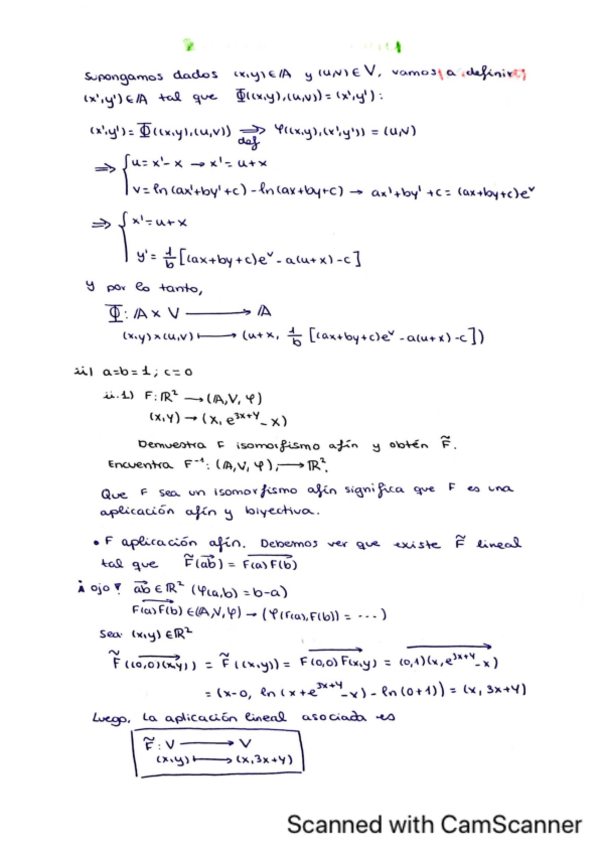 Supongamos dados (x,y)∈A y (u,v)∈V, vamos a definir
(x',y')∈A tal que Φ((x,y),(u,v))=(x',y'):
(x',y')=Φ((x,y),(u,v)) ⇒ def φ((x,y),(x',y'))=(u,v)
⇒ { u=x'-x → x'=u+x
v=ln(ax'+by'+c)-ln(ax+by+c) → ax'+by'+c=(ax+by+c)e^v
⇒ { x'=u+x
y'=1/b[(ax+by+c)e^v-a(u+x)-c]
y por lo tanto,
Φ: A×V → A
(x,y)×(u,v) ↦ (u+x, 1/b [(ax+by+c)e^v-a(u+x)-c])
ii) a=b=1; c=0
ii.1) F: ℝ² → (A,V,φ)
(x,y) → (x, e^{3x+y}-x)
Demuestra F isomorfismo afín y obtén F̃.
Encuentra F⁻¹: (A,V,φ) → ℝ².
Que F sea un isomorfismo afín significa que F es una
aplicación afín y biyectiva.
• F aplicación afín. Debemos ver que existe F̃ lineal
tal que F̃(ab⃗) = F(a)F(b)⃗
¡ ojo ! ab⃗ ∈ ℝ² (φ(a,b)=b-a)
F(a)F(b)⃗ ∈ (A,V,φ) → (φ(F(a),F(b)) = ...)
Sea (x,y)∈ℝ²
F̃((0,0)(x,y)⃗) = F̃((x,y)) = F(0,0)F(x,y)⃗ = (0,1)(x,e^{3x+y}-x)⃗
= (x-0, ln(x+e^{3x+y}-x)-ln(0+1)) = (x, 3x+y)
Luego, la aplicación lineal asociada es
F̃: V → V
(x,y) ↦ (x,3x+y)
Scanned with CamScanner